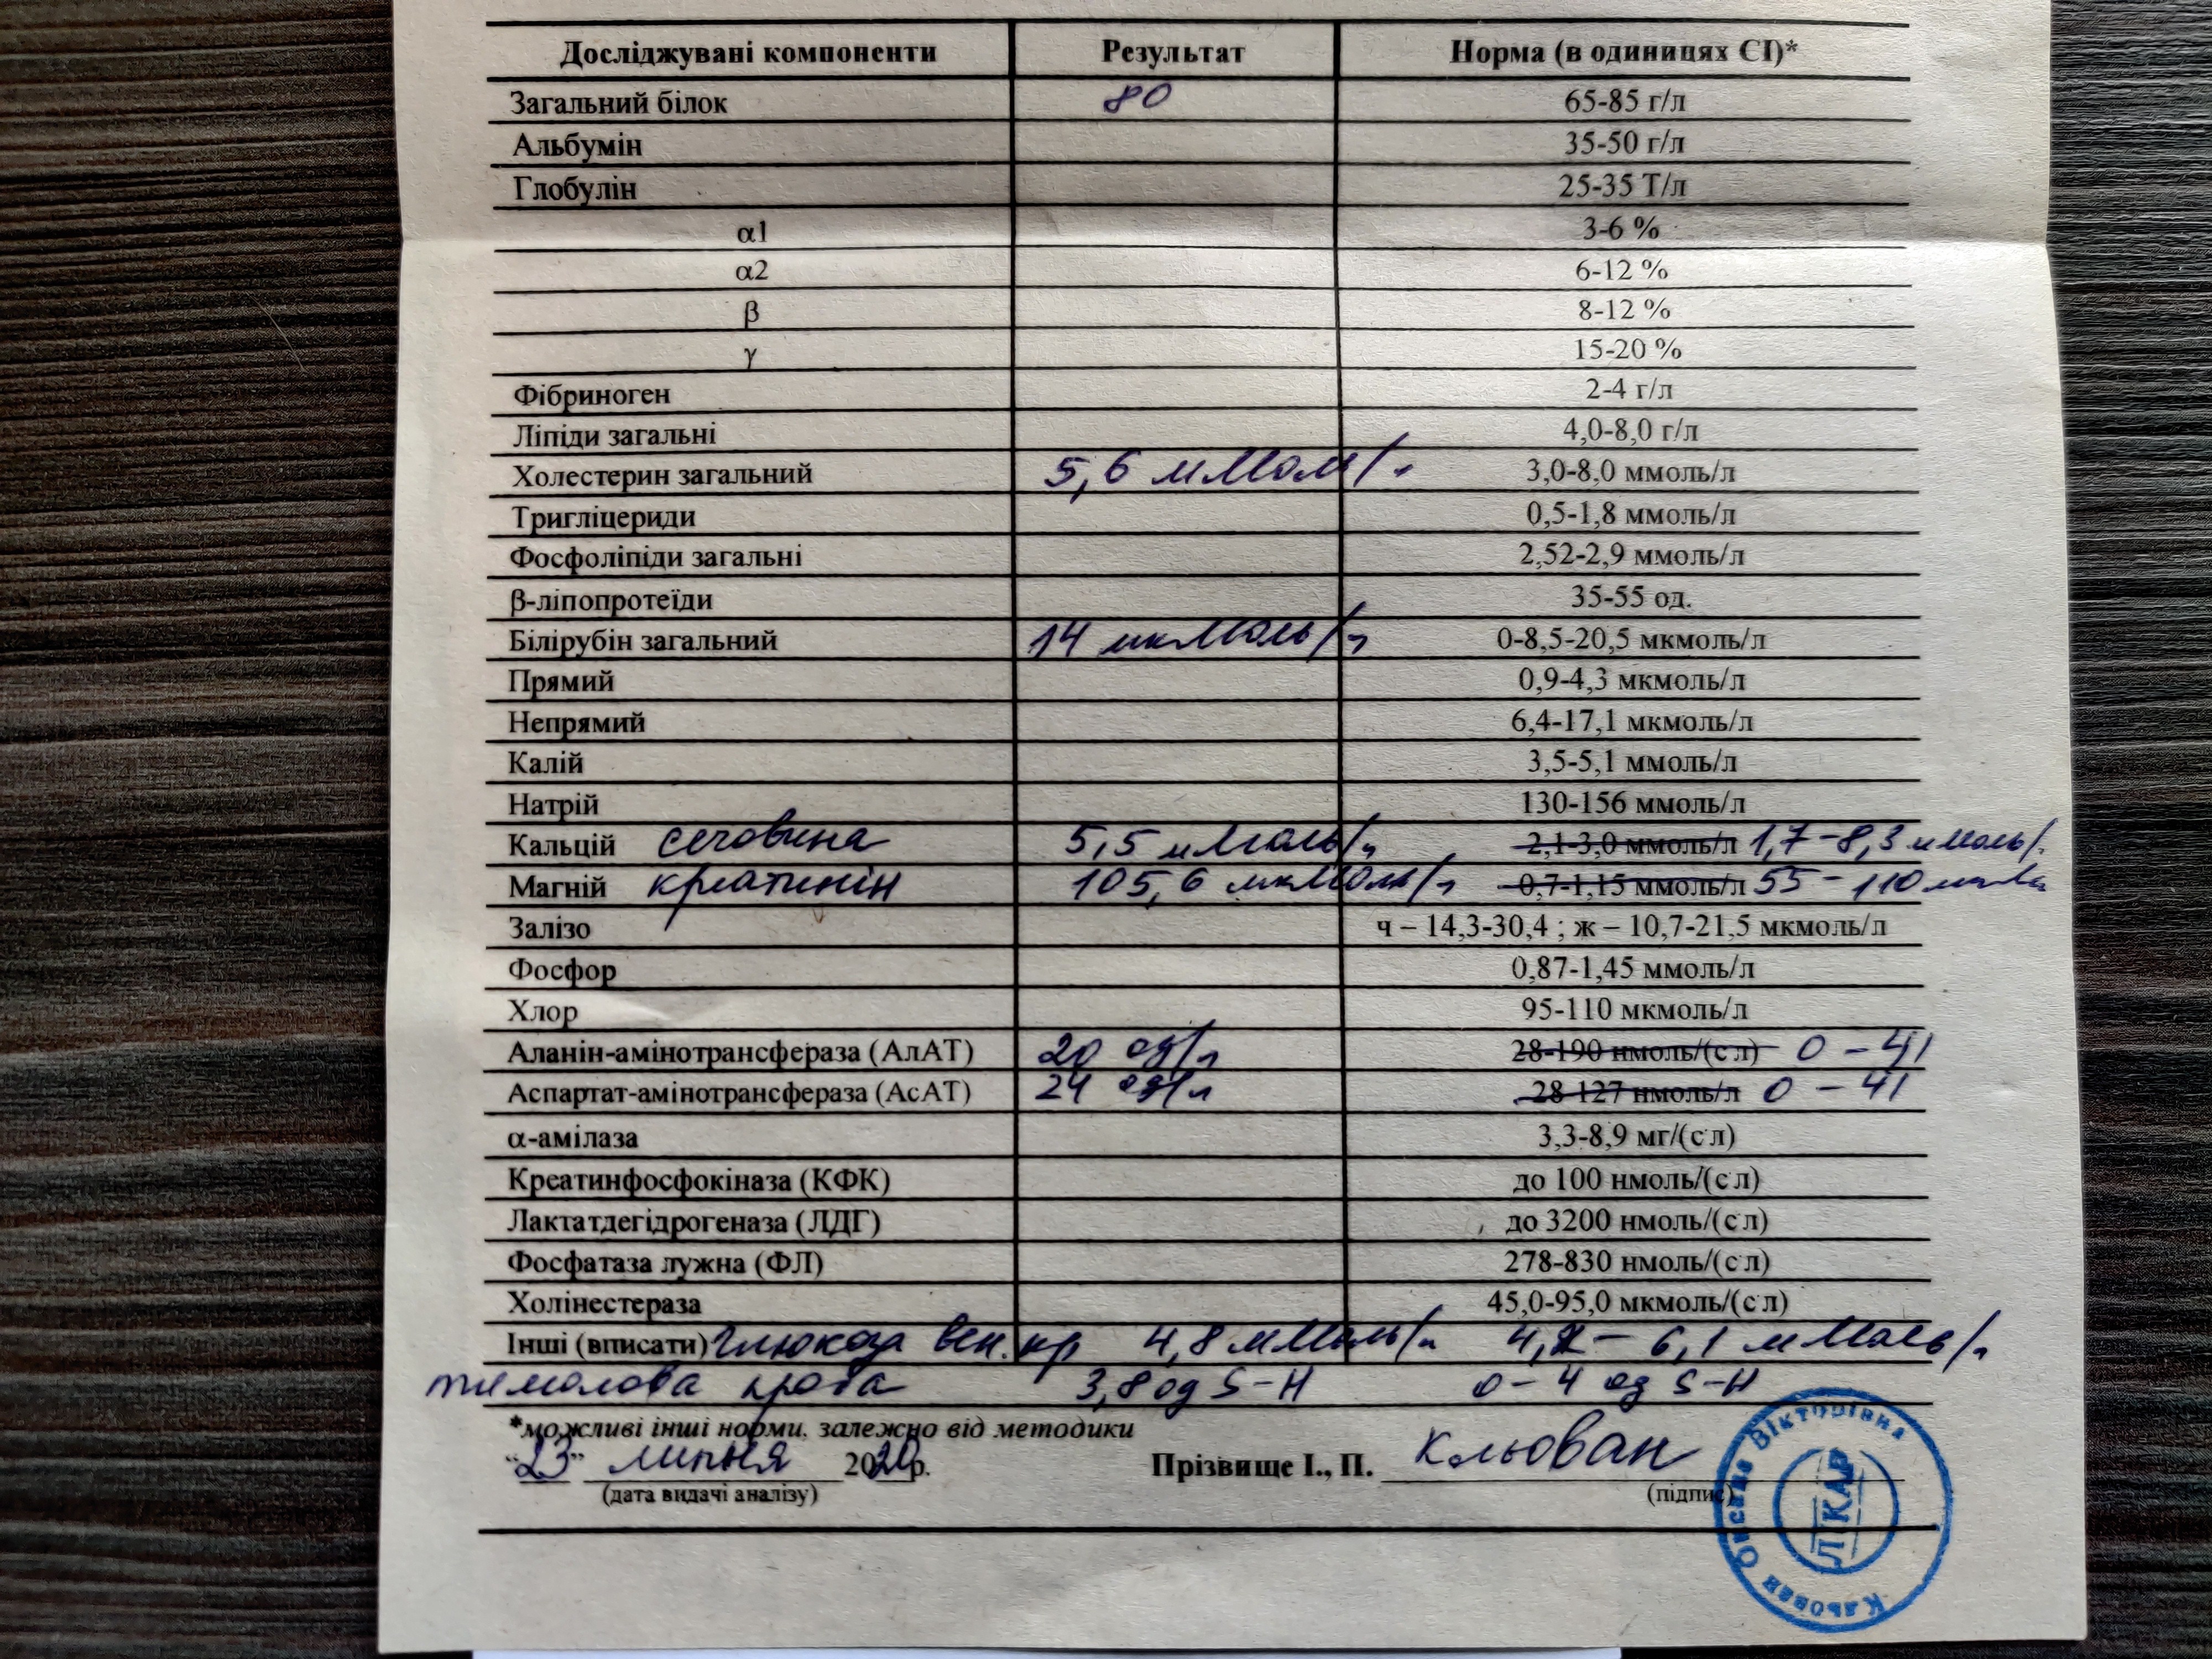 Досліджувані компоненти Результат Норма (в одиницях СІ)*
Загальний білок 80 65-85 г/л
Альбумін 35-50 г/л
Глобулін 25-35 Т/л
α1 3-6 %
α2 6-12 %
β 8-12 %
γ 15-20 %
Фібриноген 2-4 г/л
Ліпіди загальні 4,0-8,0 г/л
Холестерин загальний 5,6 мМоль/л 3,0-8,0 ммоль/л
Тригліцериди 0,5-1,8 ммоль/л
Фосфоліпіди загальні 2,52-2,9 ммоль/л
β-ліпопротеїди 35-55 од.
Білірубін загальний 14 мкМоль/л 0-8,5-20,5 мкмоль/л
Прямий 0,9-4,3 мкмоль/л
Непрямий 6,4-17,1 мкмоль/л
Калій 3,5-5,1 ммоль/л
Натрій 130-156 ммоль/л
Кальцій сечовина 5,5 мМоль/л 2,1-3,0 ммоль/л 1,7-8,3 мМоль/л
Магній креатинін 105,6 мкМоль/л 0,7-1,15 ммоль/л 55-110
Залізо ч – 14,3-30,4 ; ж – 10,7-21,5 мкмоль/л
Фосфор 0,87-1,45 ммоль/л
Хлор 95-110 мкмоль/л
Аланін-амінотрансфераза (АлАТ) 20 од/л 28-190 нмоль/(с л) 0-41
Аспартат-амінотрансфераза (АсАТ) 24 од/л 28-127 нмоль/л 0-41
α-амілаза 3,3-8,9 мг/(с л)
Креатинфосфокіназа (КФК) до 100 нмоль/(с л)
Лактатдегідрогеназа (ЛДГ) до 3200 нмоль/(с л)
Фосфатаза лужна (ФЛ) 278-830 нмоль/(с л)
Холінестераза 45,0-95,0 мкмоль/(с л)
Інші (вписати) глюкоза вен. кр 4,8 мМоль/л 6,1 мМоль/л
тимолова проба 3,8 од S-H 0-4 од S-H
*можливі інші норми, залежно від методики
"23" липня 2020р. Прізвище І., П. Кльован
(дата видачі аналізу) (підпис)
Кльован Оксана Вікторівна
ЛІКАР